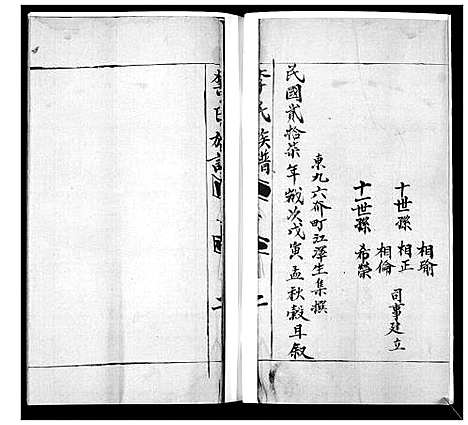 相瑜
十世孫 相正 司事建立
相倫
十一世孫 希榮
東九六 町江澤生集撰
民國貳拾柒年歲次戊寅孟秋穀旦敘
李氏族譜
二
李氏族譜
二